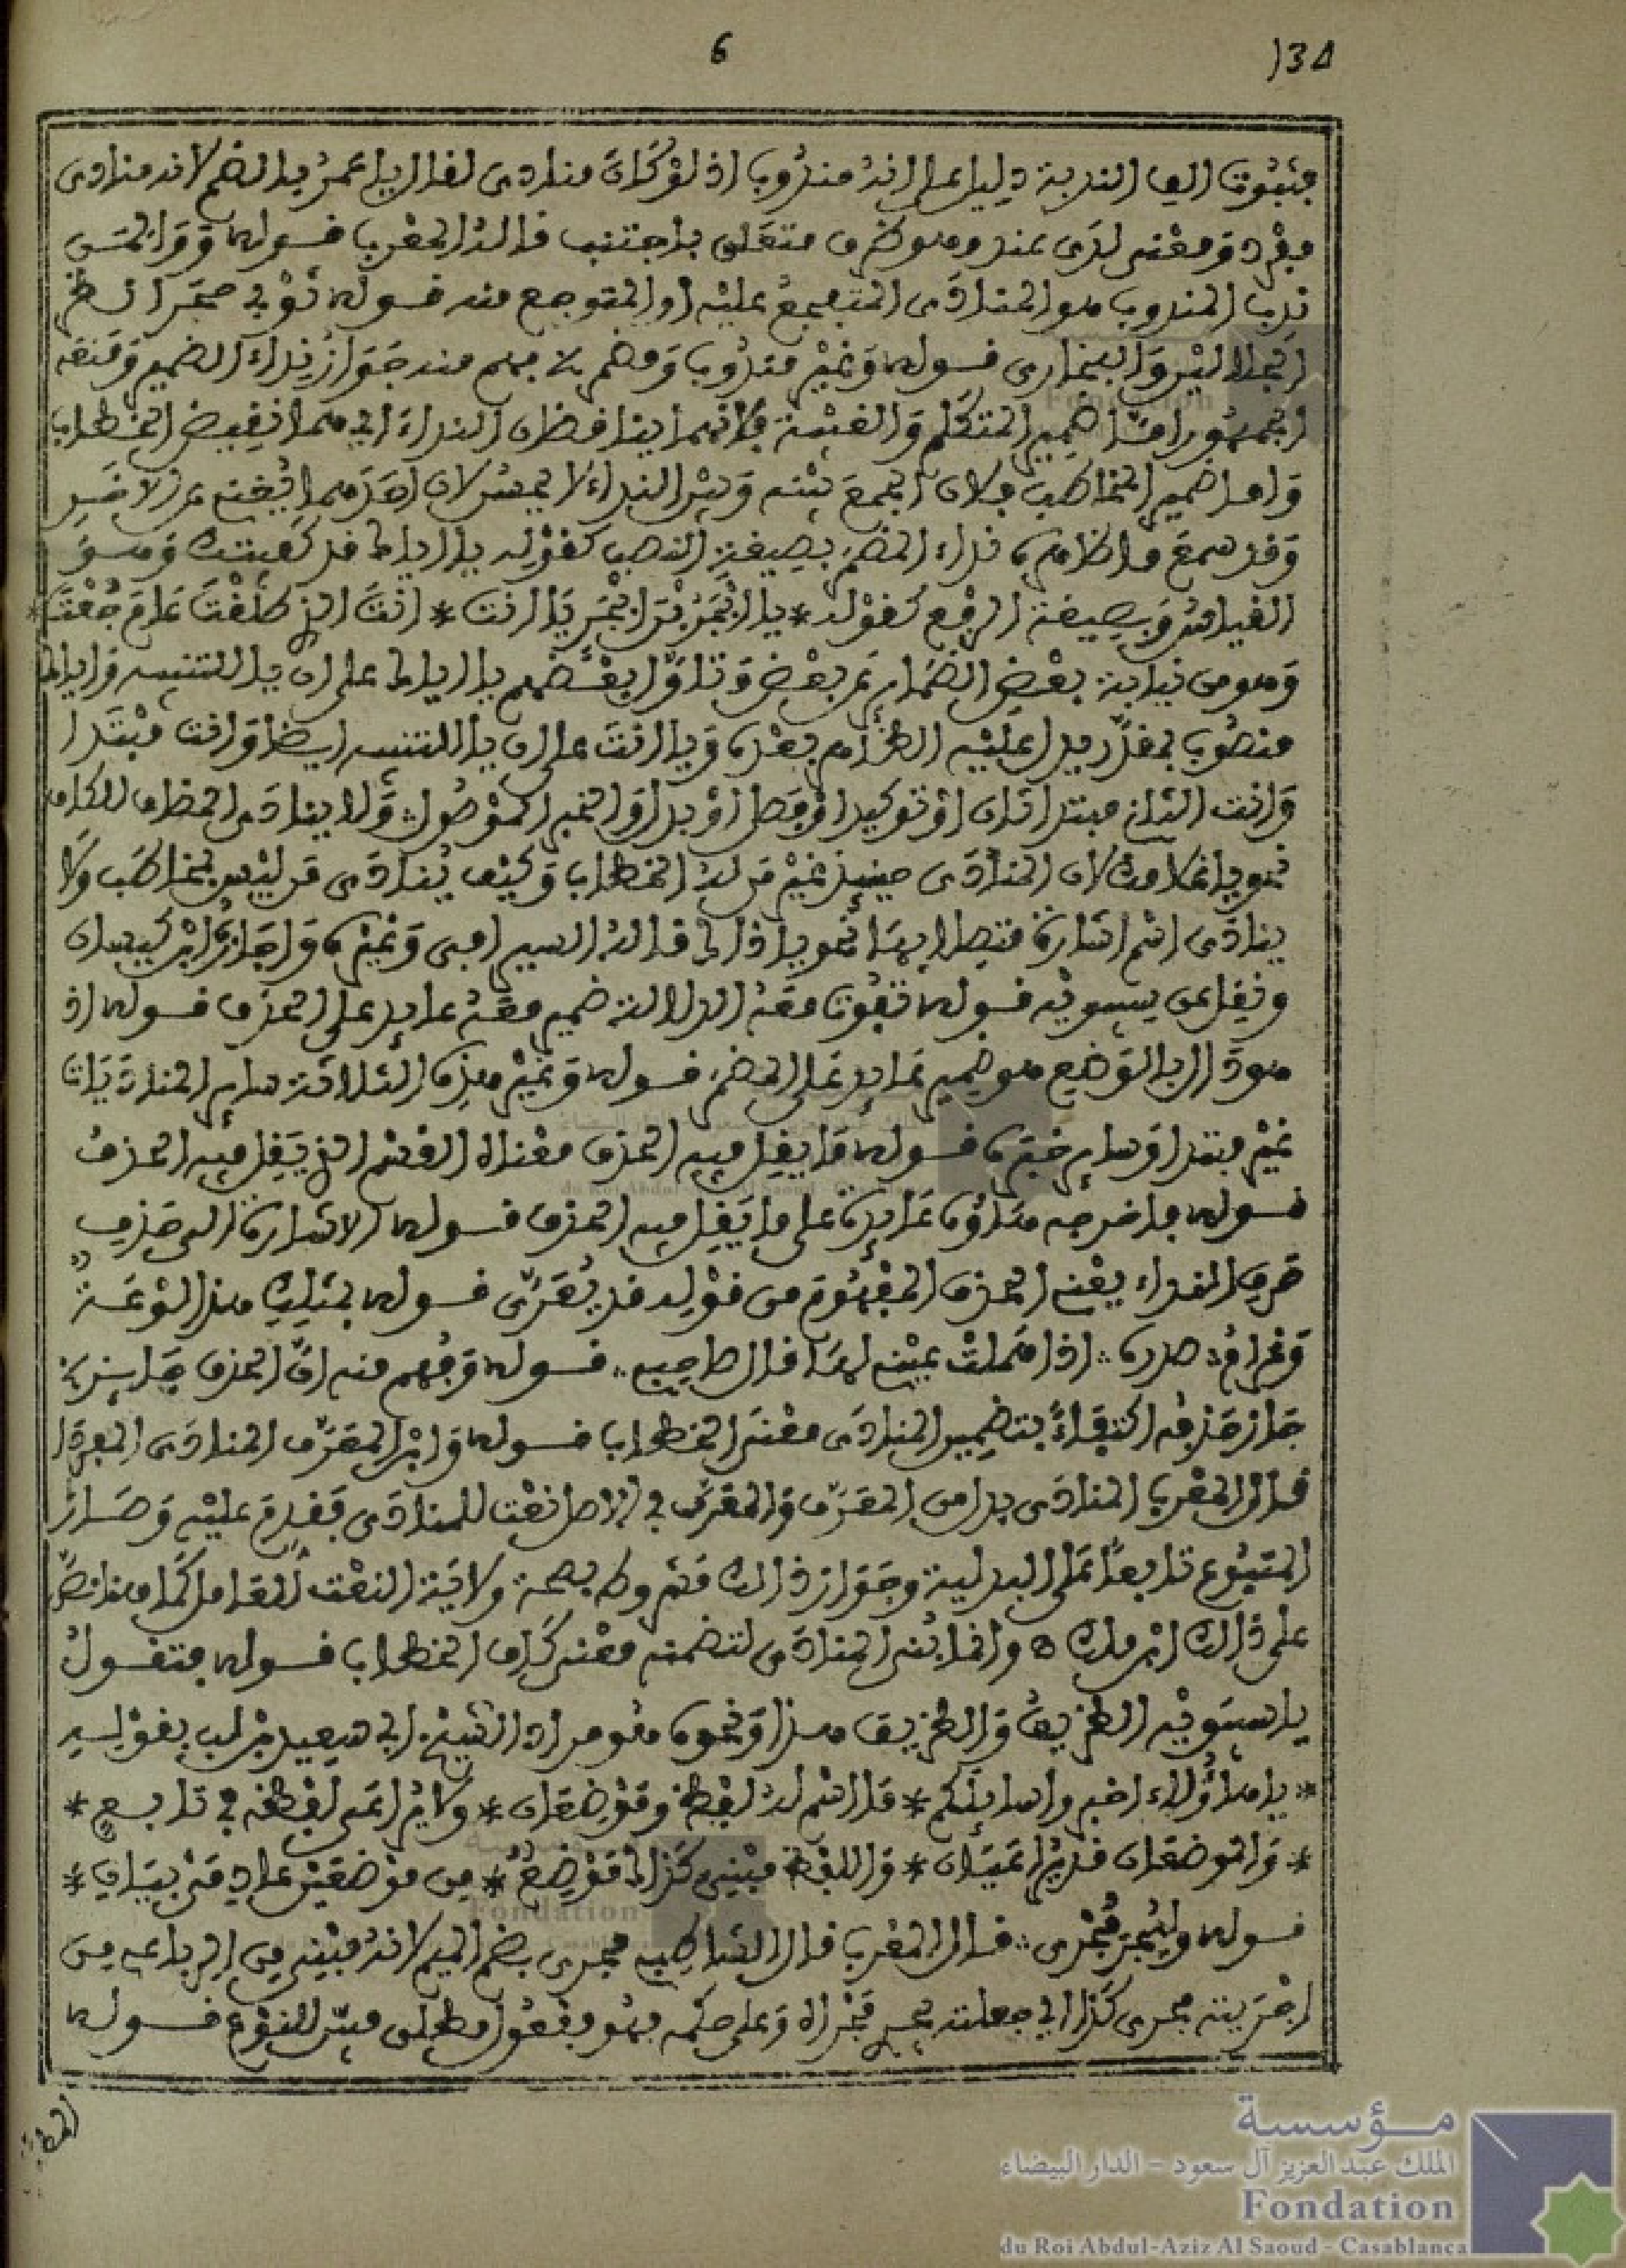 6
134
فثبوت الف الندبة دليل على انه مندوب اذ لو كان منادى لقال يا عمر بالضم لانه منادى
مفرد ومعنى لدى عند وهو ظرف متعلق باجتنب قاله المعرب قوله
ندب المندوب هو المنادى المتفجع عليه او المتوجع منه قوله ثوبي حجر انظر
الجلالين والبخاري قوله وغير مندوب ومضمر يفهم منه جواز نداء الضمير ومنعه
الجمهور اما ضمير المتكلم والغيبة فلانهما يناقضان النداء اي هما نقيض الخطاب
واما ضمير المخاطب فلان الجمع بينه وبين النداء لا يحسن لان احدهما يغني عن الاخر
وقد سمع ما ظاهره نداء المضمر بصيغة النصب كقوله يا اياك قد كفيتك وهو
القياس وبصيغة الرفع كقوله * يا ابجر بن ابجر يا انت * انت الذي طلقت عام جعت *
وهو من نيابة بعض الضمائر عن بعض وتاول بعضهم يا اياك على ان يا للتنبيه واياك
منصوب بمقدر يدل عليه الظاهر بعده ويا انت على ان يا للتنبيه ايضا وانت مبتدا
وانت الثاني مبتدا ثان او توكيد او فصل او بدل والخبر الموصول ولا ينادى المضاف للكاف
نحو يا غلامك لان المنادى حينئذ غير من له الخطاب وكيف ينادى من ليس بمخاطب ولا
ينادى اسم اشارة متصلا بها نحو يا ذاك قاله السيرافي وغيره واجازه ابن كيسان
ونقل عن سيبويه قوله تفوت معه الدلالة ضمير معه عائد على الحذف قوله اذ
هو دال بالوضع هو ضمير عائد على المضمر قوله وغير هذه الثلاثة سائر المناديات
غير مبتدا وسائر خبره قوله ما يقل فيه الحذف معناه القسم الذي يقل فيه الحذف
قوله فاخرجه هاؤه عائدة على ما يقل فيه الحذف قوله الاشارة الى حذف
حرف النداء يعني الحذف المفهوم من قوله قد يعرى قوله بمثلك هذا لوعة
وغرام صدره اذا هملت عيني لها قال صاحبي قوله وفهم منه ان الحذف جائز
جاز حذفه اكتفاء بتضمين المنادى معنى الخطاب قوله وابن المعرف المنادى المفردا
قال المعرب المنادى بدل من المعرف والمعرف في الاصل نعت للمنادى فقدم عليه وصار
المتبوع تابعا على البدلية وجواز ذلك مشروط بصحة ولاية النعت للعامل كما هنا نص
على ذلك ابن مالك ه وانما بني المنادى لتضمنه معنى كاف الخطاب قوله فتقول
يا سيبويه الظريف والظريف هذا ونحوه هو مراد الشيخ ابي سعيد بن لب بقوله
* يا هؤلاء اخبروا سائلكم * ما اسم له لفظ وموضعان * ولا يراعى لفظه في تابع *
* والموضعان قد يراعيان * واللفظ مبني كذاك موضع * من موضعيه عادم بيان *
قوله وليجر مجرى قال المعرب قال الشاطبي مجرى بضم الميم لانه مبني من الرباعي من
اجريته مجرى كذا اي جعلته يجري مجراه وعلى حكمه فهو مفعول مطلق مبين للنوع قوله
مؤسسة
الملك عبد العزيز آل سعود - الدار البيضاء
Fondation
du Roi Abdul-Aziz Al Saoud - Casablanca